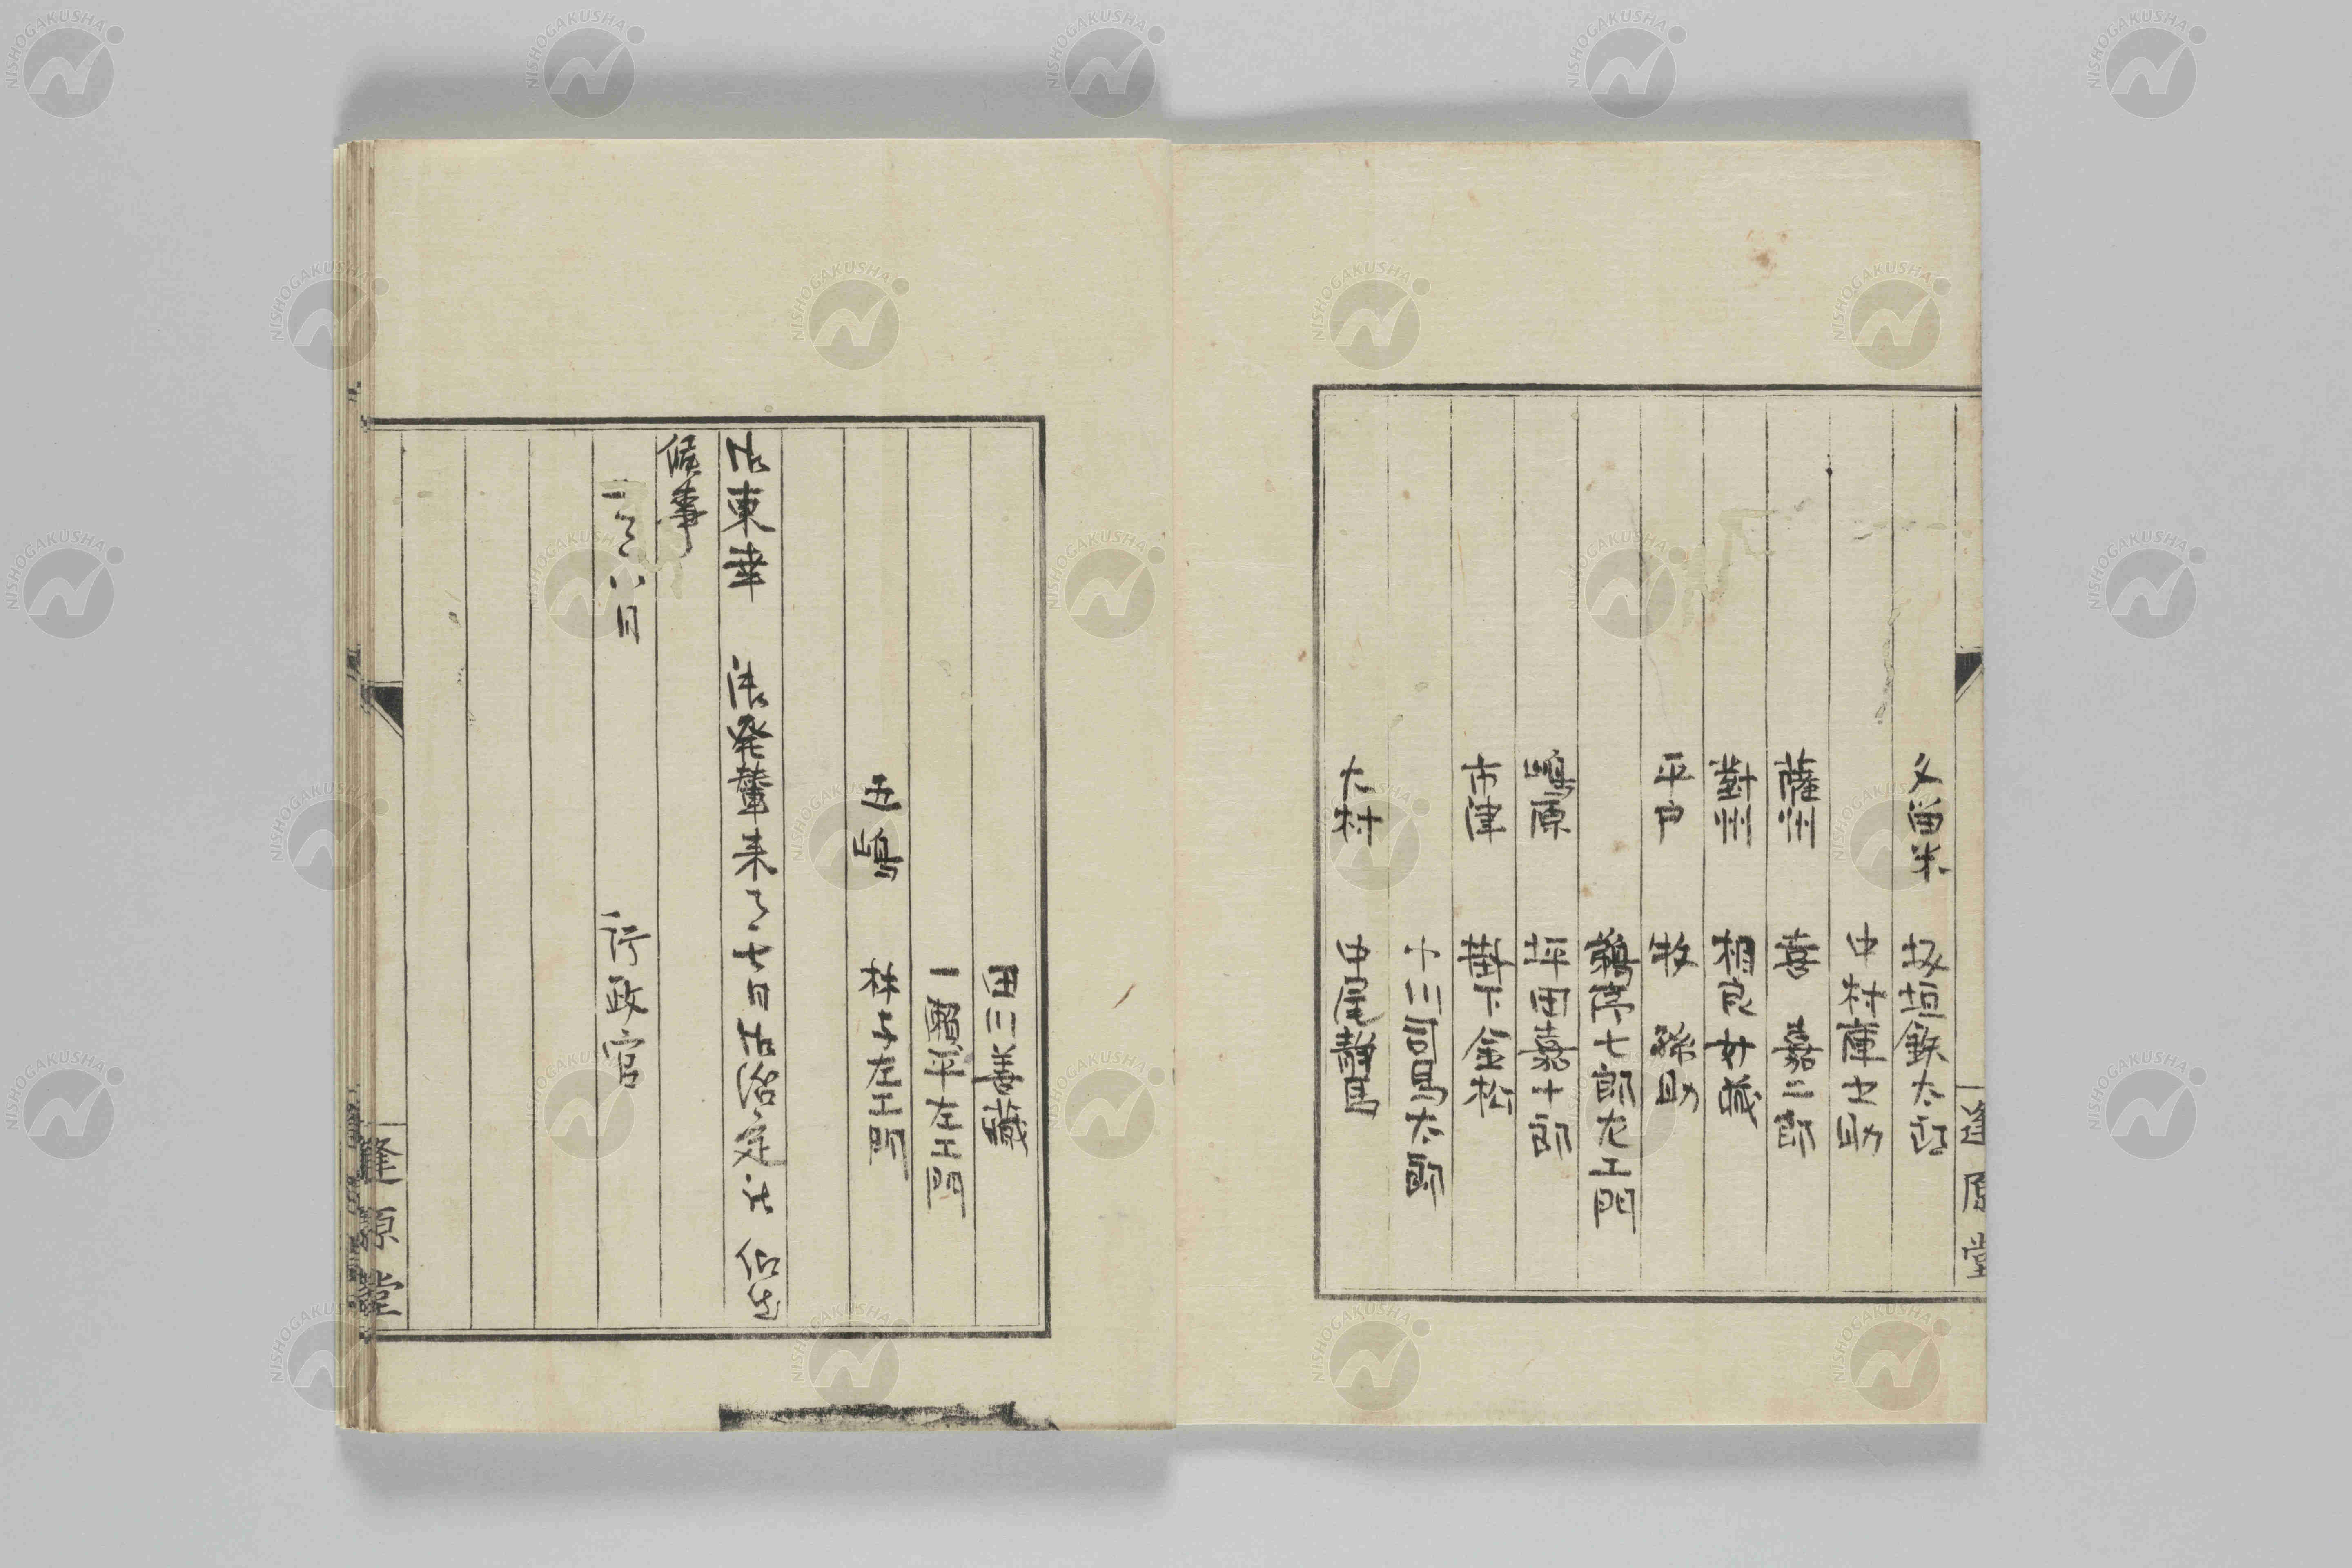 久留米　坂垣鉄太郎
中村庫之助
薩州　喜　嘉二郎
對州　相良女蔵
平戸　牧　孫助
七郎左エ門
嶋原　坪田嘉十郎
木下金松
太郎
大村　中尾静馬
逢原堂
田川善蔵
一瀬平左エ門
五嶋　林与左エ門
御東幸　御発輦来ル七日御治定被　仰出
候事
八日
行政官
逢原堂
NISHOGAKUSHA